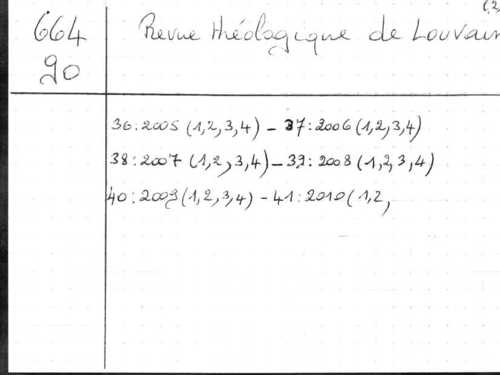 664
90
Revue théologique de Louvain
36:2005 (1,2,3,4) - 37:2006 (1,2,3,4)
38:2007 (1,2,3,4) - 39:2008 (1,2,3,4)
40:2009 (1,2,3,4) - 41:2010 (1,2,